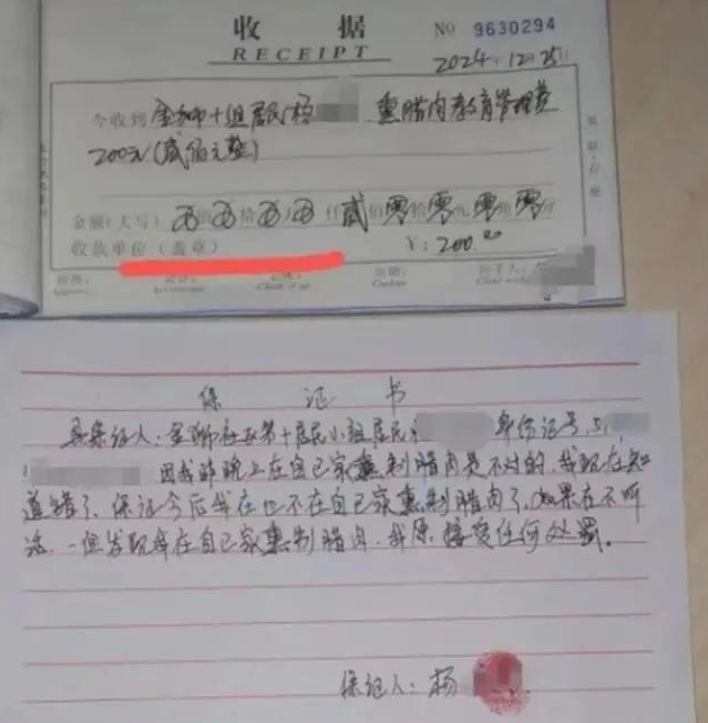 收 据
RECEIPT
NO 9630294
2024.12.25
今收到金狮十组居民杨 熏腊肉教育管理费
200元(贰佰元整)
金额(大写) 佰 拾 万 仟 贰佰零拾零元零角零分
收款单位(盖章) ¥:200.00
保 证 书
具保证人:金狮社区第十居民小组居民 身份证号,51
因我昨晚上在自己家熏制腊肉是不对的,我现在知
道错了、保证今后我在也不在自己家熏制腊肉了,如果在不听
话、一但发现我在自己家熏制腊肉,我愿接受任何处罚。
保证人:杨